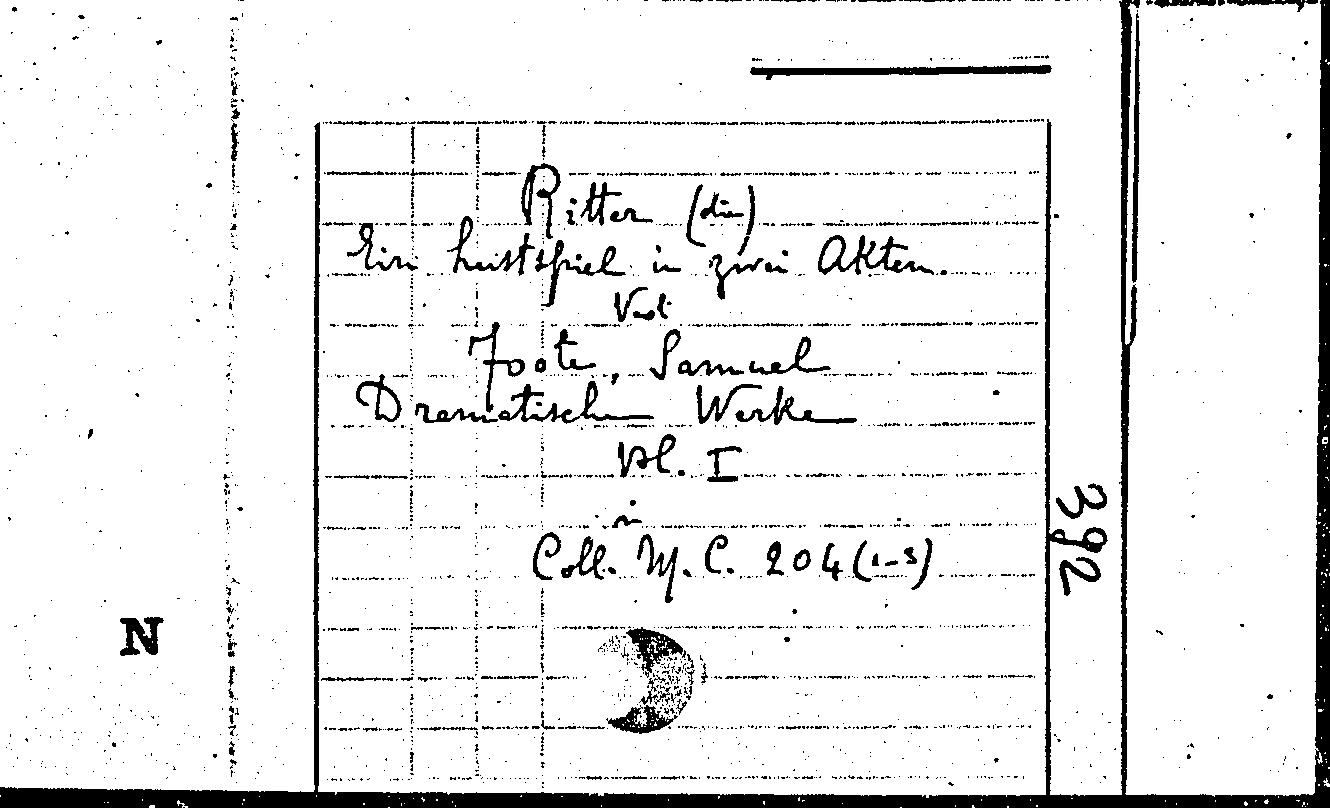 Ritter (die)
Ein Lustspiel in zwei Akten.
Foote, Samuel
Dramatische Werke
Bd. I
in
Coll. M. C. 204 (1-3)
392
N